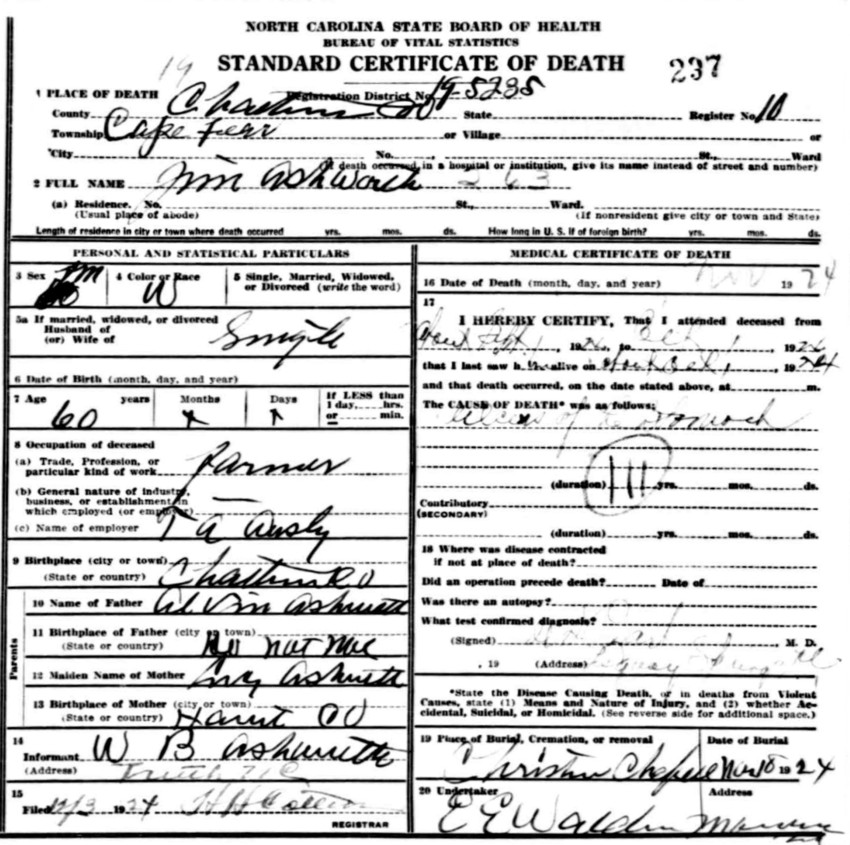 NORTH CAROLINA STATE BOARD OF HEALTH
BUREAU OF VITAL STATISTICS
STANDARD CERTIFICATE OF DEATH
19
237
1 PLACE OF DEATH Registration District No. 19-5235
County Chatham Co State Register No. 10
Township Cape Fear or Village or
City No. St., Ward
(If death occurred in a hospital or institution, give its name instead of street and number)
2 FULL NAME Jim Ashworth 263
(a) Residence. No. St., Ward.
(Usual place of abode) (If nonresident give city or town and State)
Length of residence in city or town where death occurred yrs. mos. ds. How long in U. S. if of foreign birth? yrs. mos. ds.
PERSONAL AND STATISTICAL PARTICULARS
3 Sex m 4 Color or Race W 5 Single, Married, Widowed, or Divorced (write the word)
5a If married, widowed, or divorced
Husband of
(or) Wife of
Single
6 Date of Birth (month, day, and year)
7 Age 60 years Months x Days x If LESS than 1 day, hrs. or min.
8 Occupation of deceased
(a) Trade, Profession, or particular kind of work Farmer
(b) General nature of industry, business, or establishment in which employed (or employer) —
(c) Name of employer T A
9 Birthplace (city or town)
(State or country) Chatham Co
Parents
10 Name of Father Alvin
11 Birthplace of Father (city or town)
(State or country) Do not
12 Maiden Name of Mother
13 Birthplace of Mother (city or town)
(State or country) Co
14
Informant W B
(Address)
15
Filed 12/3 1924
REGISTRAR
MEDICAL CERTIFICATE OF DEATH
16 Date of Death (month, day, and year) Nov 1924
17
I HEREBY CERTIFY, That I attended deceased from
1924, to 1924
that I last saw h alive on 1924
and that death occurred, on the date stated above, at m.
The CAUSE OF DEATH* was as follows:
of stomach
111
(duration) yrs. mos. ds.
Contributory
(SECONDARY)
(duration) yrs. mos. ds.
18 Where was disease contracted
if not at place of death?
Did an operation precede death? Date of
Was there an autopsy?
What test confirmed diagnosis?
(Signed) M. D.
, 19 (Address)
*State the Disease Causing Death, or in deaths from Violent
Causes, state (1) Means and Nature of Injury, and (2) whether Ac-
cidental, Suicidal, or Homicidal. (See reverse side for additional space.)
19 Place of Burial, Cremation, or removal Date of Burial
Christian Chapel Nov 1924
20 Undertaker Address
E E Walden